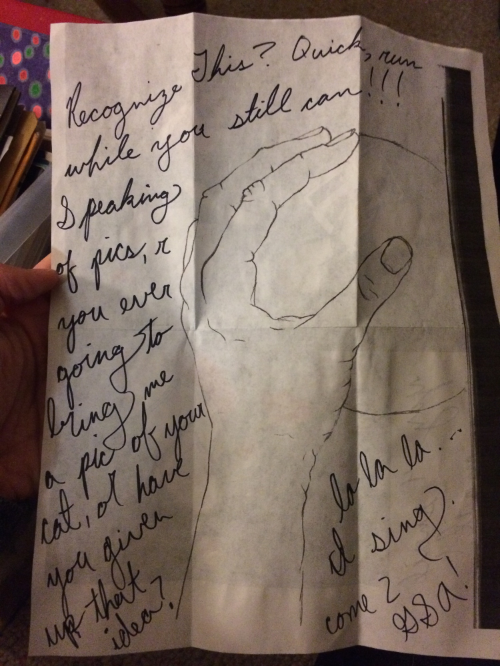 Recognize This? Quick, run
while you still can!!!
Speaking
of pics, r
you ever
going to
bring me
a pic of your
cat, or have
you given
up that
idea?
la la la...
I sing.
come 2
GSA!